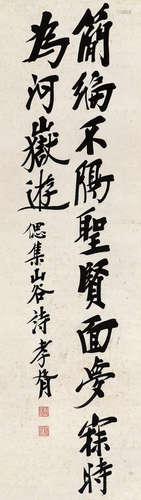 簡編不隔聖賢面夢寐時
為河嶽遊
偲集山谷詩孝胥